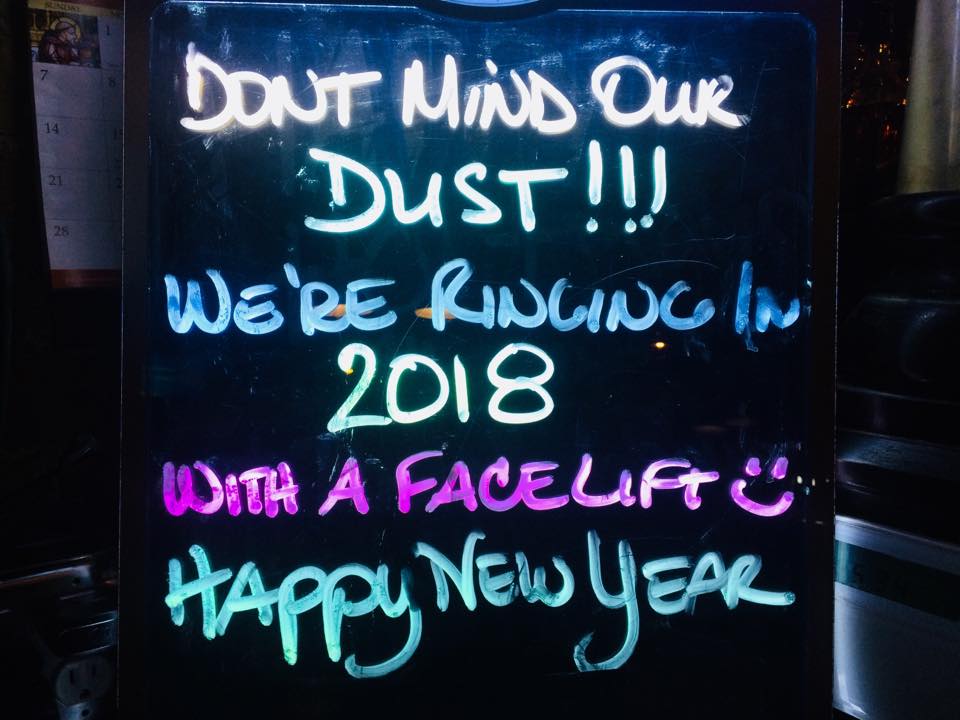 SUNDAY
1
7
8
14
21
28
DONT MIND OUR
DUST!!!
WE'RE RINGING IN
2018
WITH A FACELIFT
HAPPY NEW YEAR